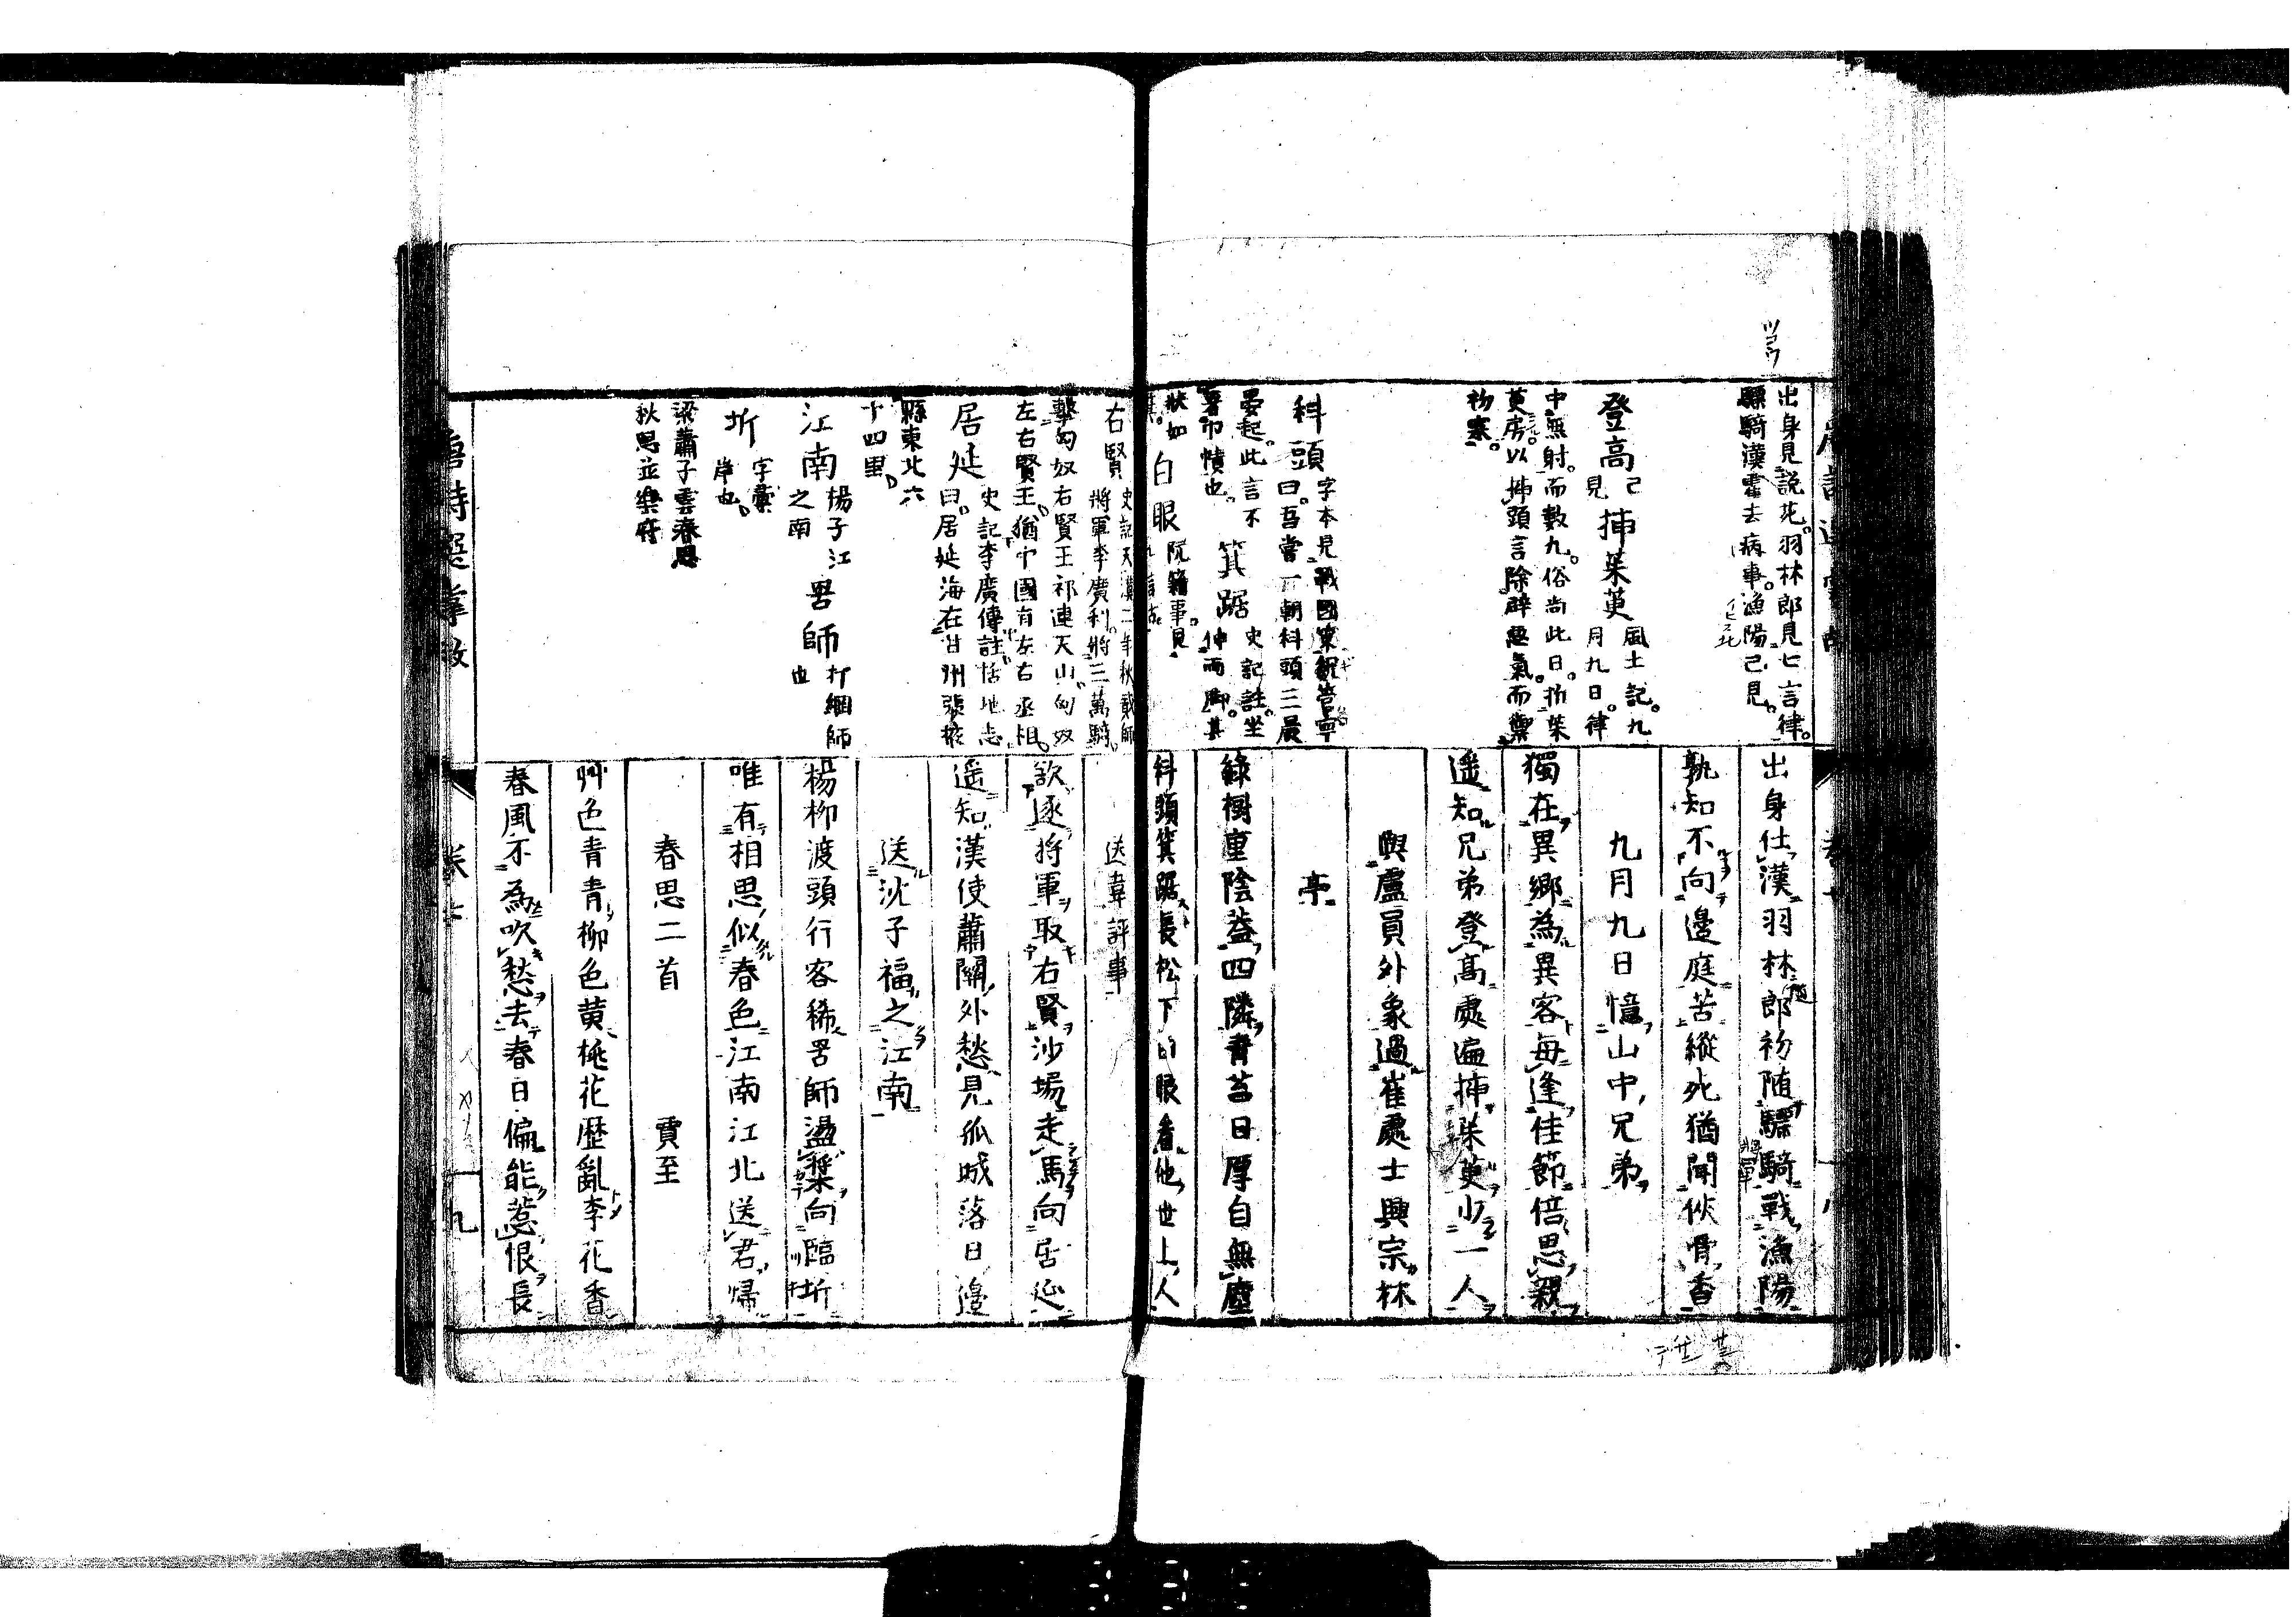 出身見說死。羽林郎見七言律。
驃騎漢霍去病事。漁陽已見。
登高已見 挿茱萸風土記。九月九日。律
中無射。而數九。俗尚此日。折茱
萸房。以挿頭言除辟惡氣。而禦
初寒。
科頭字本見戰國策魏管寧曰。吾嘗一朝科頭三晨
晏起。此言不著巾幘也。 箕踞史記註。坐伸兩脚。其
狀如箕。 白眼阮籍事。見
出身仕漢羽林郎初随驃騎戰漁陽
孰知不向邊庭苦縱死猶聞俠骨香
九月九日憶山中兄弟
獨在異鄉為異客每逢佳節倍思親
遥知兄弟登高處遍挿茱萸少一人
與盧員外象過崔處士興宗林
亭
綠樹重陰蓋四隣青苔日厚自無塵
科頭箕踞長松下白眼看他世上人
右賢史記天漢二年秋貳師將軍李廣利。將三萬騎。
擊匈奴右賢王祁連天山匈奴
左右賢王猶中國有左右丞相。
居延史記李廣傳註括地志曰居延海在甘州張掖
縣東北六
十四里
江南楊子江之南 罟師打網師也
圻字彙岸也
梁蕭子雲春思
秋思並樂府
送韋評事
欲逐将軍取右賢沙場走馬向居延
遥知漢使蕭關外愁見孤城落日邊
送沈子福之江南
楊柳渡頭行客稀罟師盪槳向臨圻
唯有相思似春色江南江北送君歸
春思二首 賈至
艸色青青柳色黄桃花歷亂李花香
春風不為吹愁去春日偏能惹恨長
唐詩選掌故
九